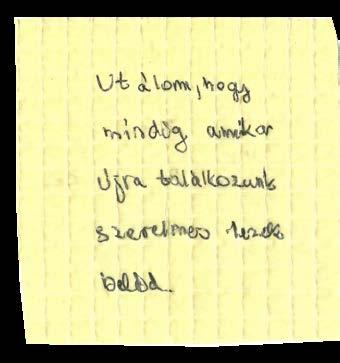 Utálom, hogy
mindig amikor
újra találkozunk
szerelmes leszek
beléd.